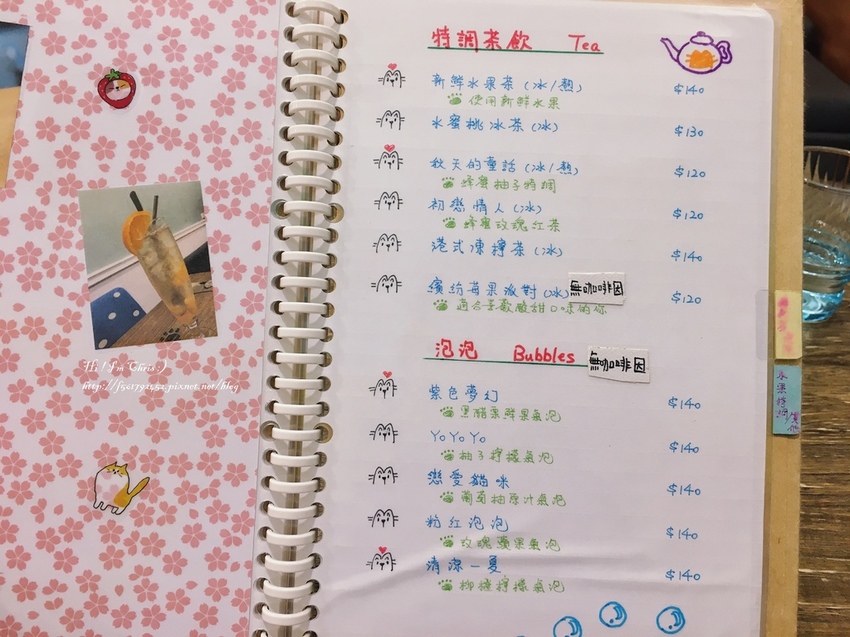 特調茶飲 Tea
新鮮水果茶(冰/熱) $140
使用新鮮水果
水蜜桃冰茶(冰) $130
秋天的童話(冰/熱) $120
蜂蜜柚子特調
初戀情人(冰) $120
蜂蜜玫瑰紅茶
港式凍檸茶(冰) $140
繽紛莓果派對(冰) 無咖啡因 $120
適合喜歡酸甜口味的你
泡泡 Bubbles 無咖啡因
紫色夢幻 $140
黑醋栗鮮果氣泡
YoYoYo $140
柚子檸檬氣泡
戀愛貓咪 $140
葡萄柚原汁氣泡
粉紅泡泡 $140
玫瑰蘋果氣泡
清涼一夏 $140
柳橙檸檬氣泡
Hi! I'm Chris:)